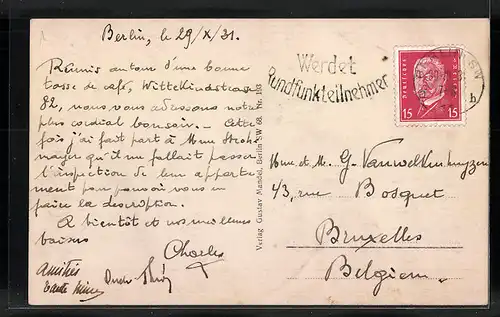 Berlin, le 29/X/31.
Réunis autour d'une bonne
tasse de café, Wittekindstrasse
82, nous vous adressons notre
plus cordial bonsoir. Cette
fois j'ai fait part à Mme
qu'il me fallait passer
l'inspection de leur apparte-
ment pour pouvoir vous en
faire la description.
A bientôt et nos meilleurs
baisers
Charles
Amitiés
Tante
Verlag Gustav Mandel, Berlin SW 68. Nr. 193
Werdet
Rundfunkteilnehmer
DEUTSCHES
15 15
SW
h
Mme et M. G. Vanwelkenhuyzen
43, rue Bosquet
Bruxelles
Belgien.